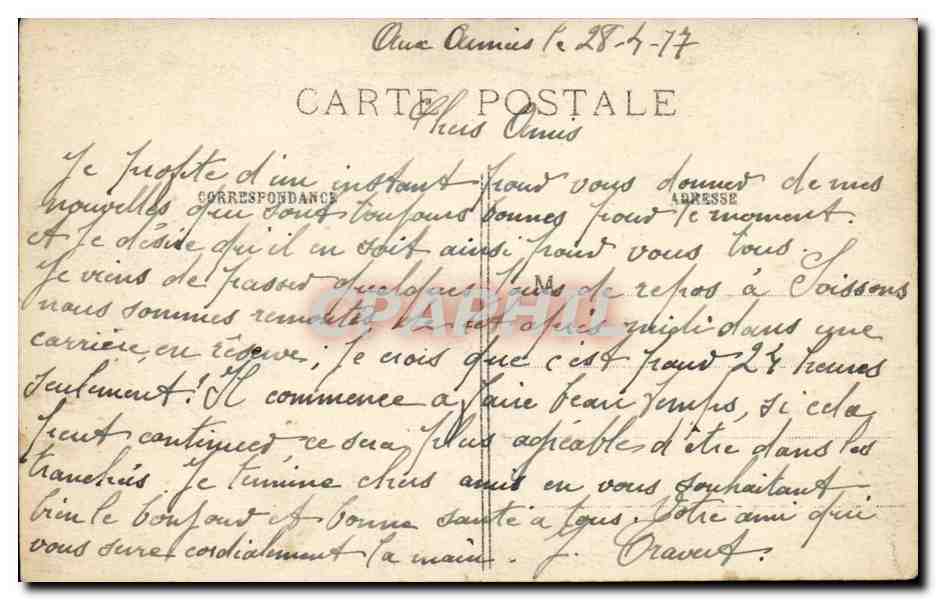 Aux Armées le 28-4-17
CARTE POSTALE
Chers Amis
Je profite d'un instant pour vous donner de mes
CORRESPONDANCE
ADRESSE
nouvelles qui sont toujours bonnes pour le moment.
et je désire qu'il en soit ainsi pour vous tous.
Je viens de passer quelques jours de repos à Soissons
M
CPAPHIL
nous sommes remontés cet après midi dans une
carrière, en réserve; je crois que c'est pour 24 heures
seulement! Il commence à faire beau temps, si cela
peut continuer ce sera plus agréable d'être dans les
tranchées. Je termine chers amis en vous souhaitant
bien le bonjour et bonne santé à tous. Votre ami qui
vous serre cordialement la main. J.